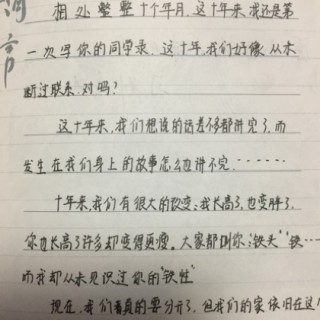 相处整整十个年月.这十年来,我还是第
一次写你的同学录.这十年,我们好像从未
断过联系.对吗?
这十年来,我们想说的话差不多都讲完了,而
发生在我们身上的故事怎么也讲不完.……
十年来,我们有很大的改变:我长高了,也变胖了.
你也长高了许多却变得更瘦。大家都叫你:"铁头""铁…
而我却从未见识过你的"铁性"
现在,我们看真的要分开了.但我们的家依旧在这
言